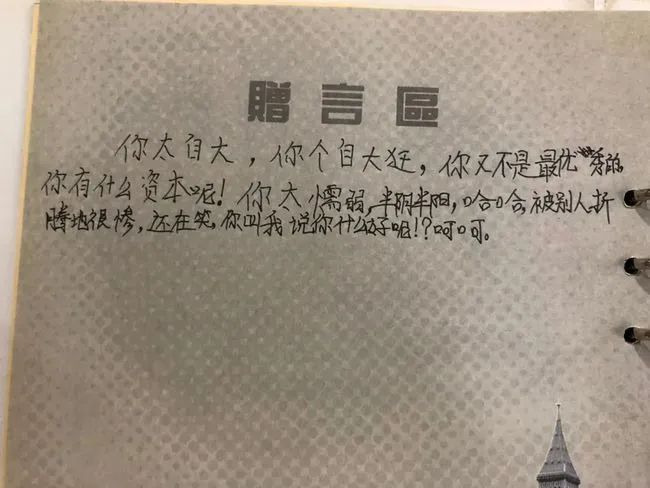 贈言區
你太自大，你个自大狂，你又不是最优秀的
你有什么资本呢！你太懦弱，半阴半阳，哈哈，被别人折
腾地很惨，还在笑，你叫我说你什么好呢！？呵呵。